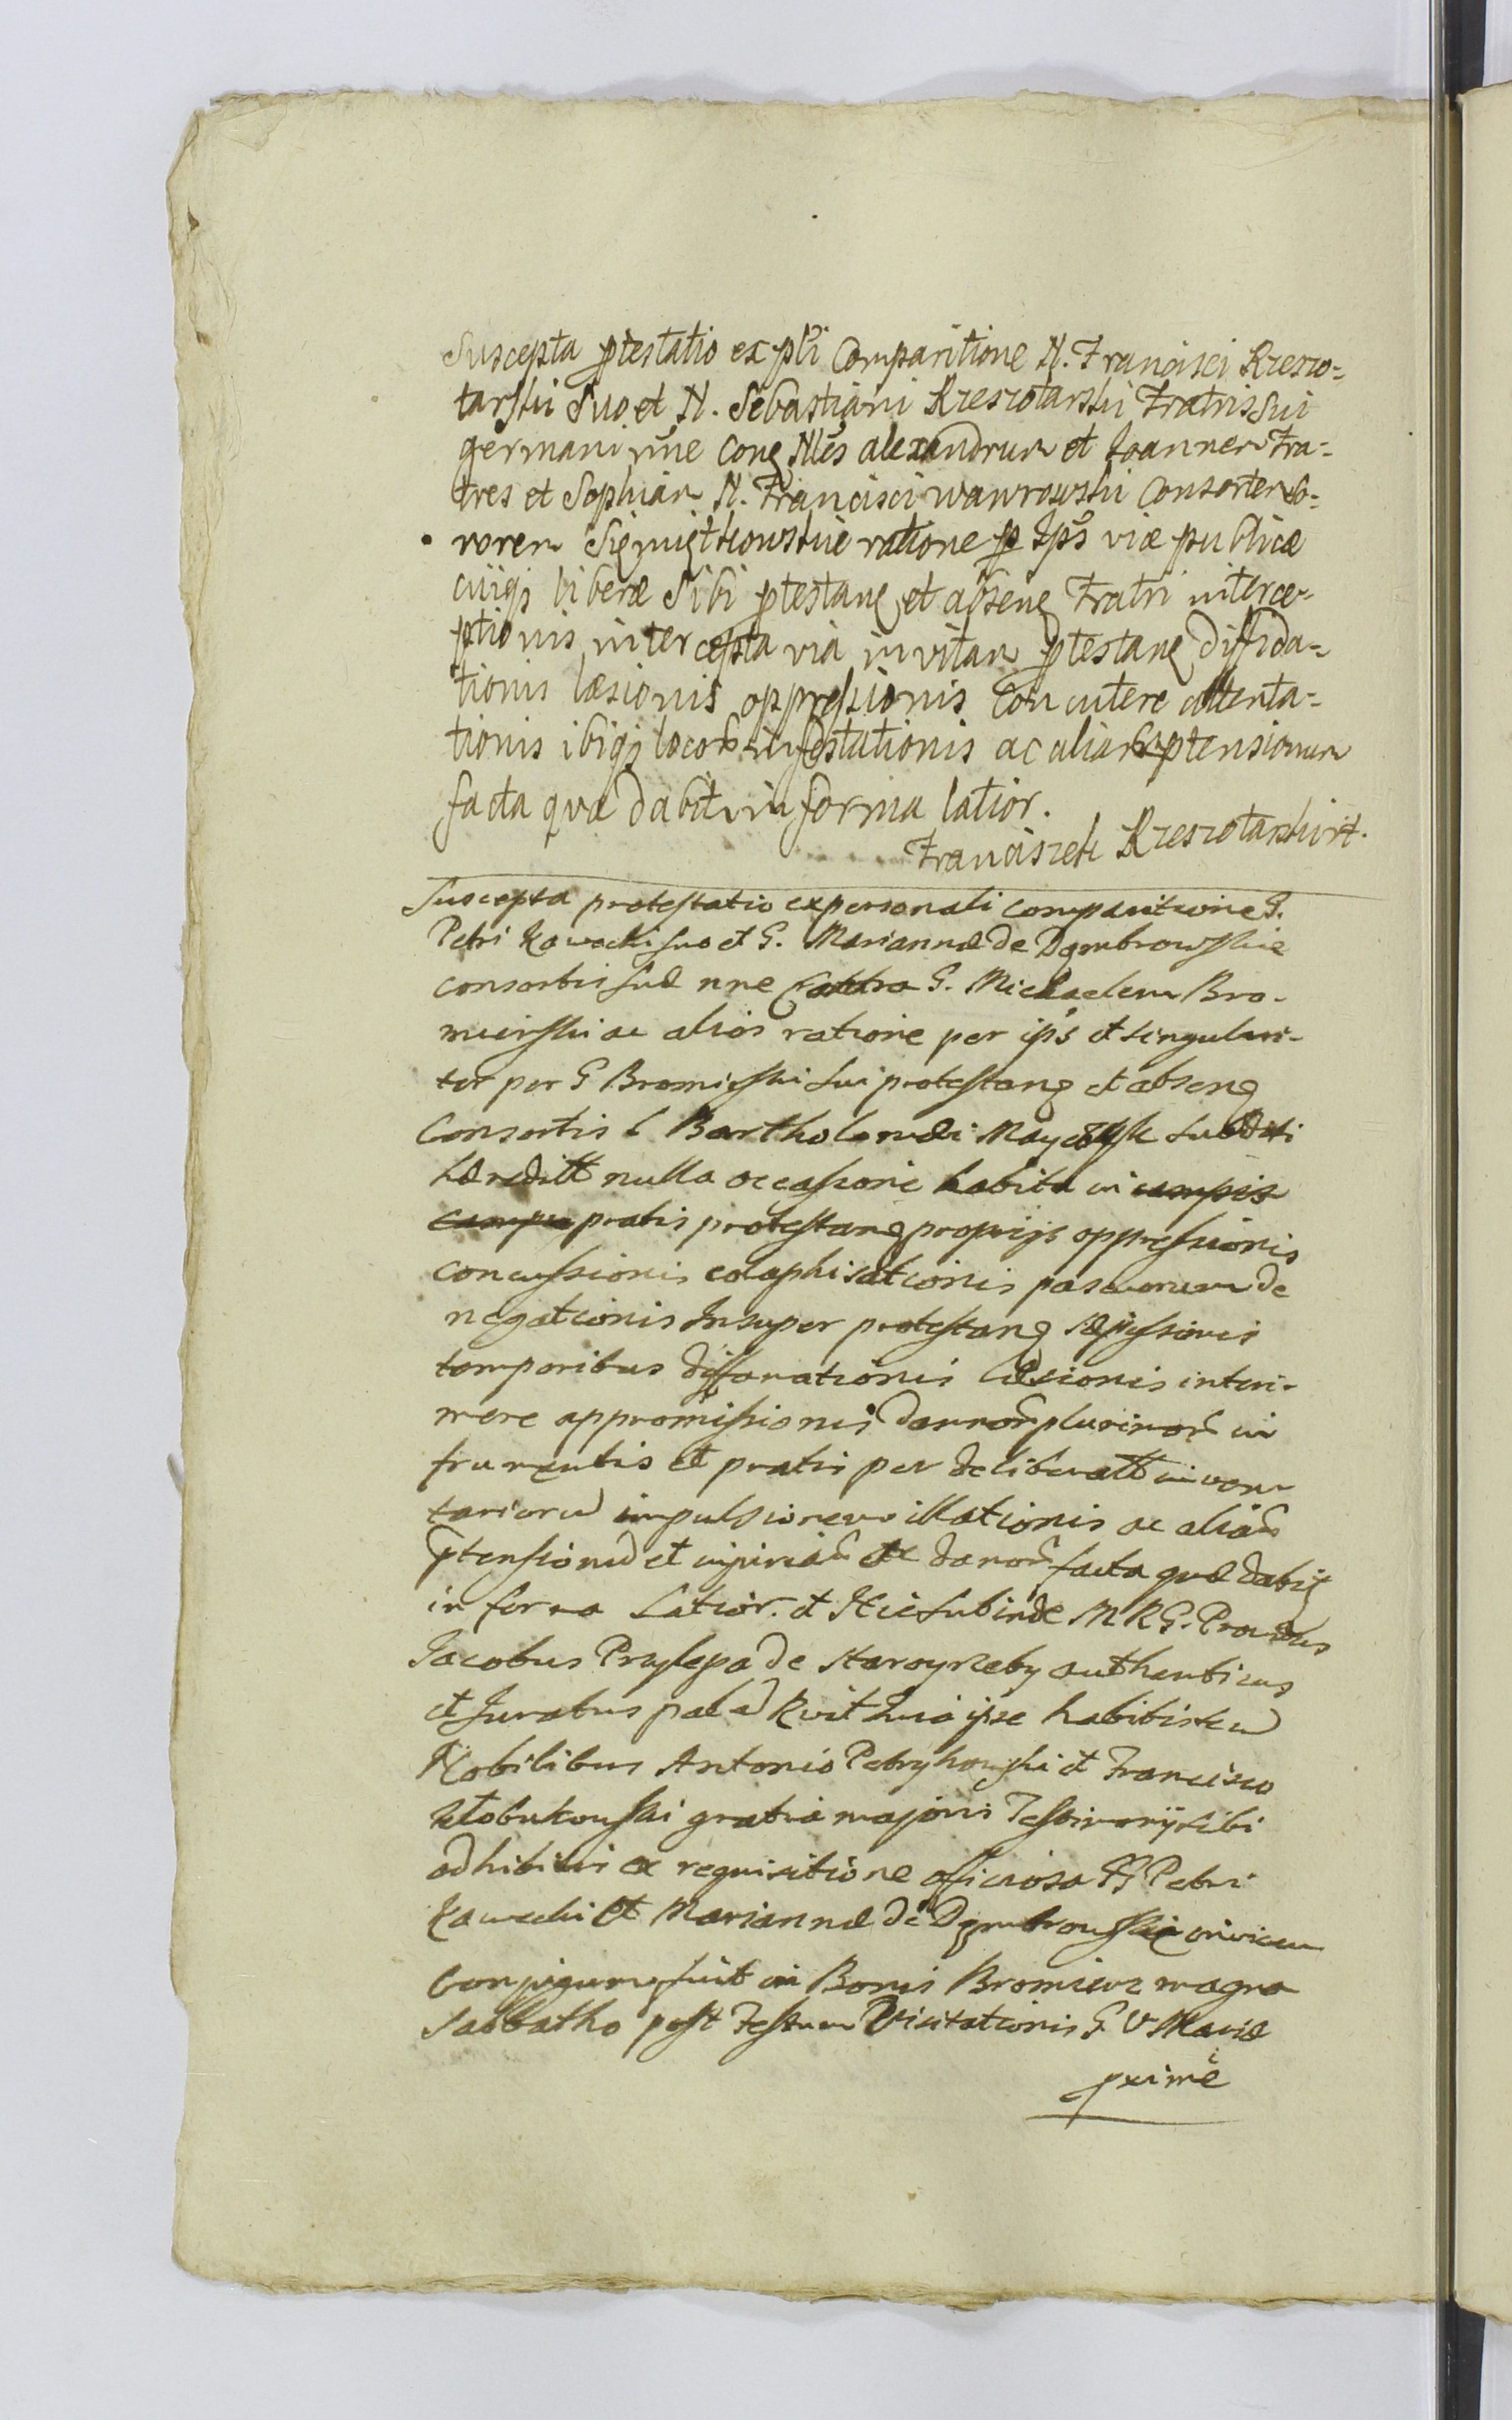 Suscepta ptestatio ex psli Comparitione N. Francisci Rzeszo-
tarski Suo et N. Sebastiani Rzeszotarski Fratris Sui
germani nne cong Nles alexandrum et Joannem Fra-
tres et Sophiam N. Francisci wawrowski Consortem So-
rorem ratione p Ips viæ publicæ
cuiqs liberæ Sibi ptestang et abseng Fratri interce-
ptionis intercepta via invitam ptestang diffida-
tionis læsionis oppressionis Concutere attenta-
tionis ibiqs locor infestationis ac aliar ptensionum
facta quæ dabit in forma latior.
Franciszek Rzeszotarski
Suscepta protestatio ex personali comparitione G.
Petri Kawecki suo et G. Mariannæ de Dąmbrowskie
consortis suæ nne Contra G. Michaelem Bro-
mierski ac alios ratione per ips et singulari-
ter per G Bromierski sui protestang et abseng
Consortis L Bartholomæi subditi
hæreditt nulla occasione habita in campis
campis pratis protestang proprijs oppressionis
concussionis colaphisationis pascuorum de
negationis Insuper protestang sæpissimis
temporibus diffamationis læsionis interi-
mere appromissionis damnor plurimor in
frumentis et pratis per deliberatt inven
tariorum impulsionem illationis ac aliar
ptensionum et injuriar et damnor facta quæ dabit
in forma Latior. et Hic subinde M R G. Providus
Jacobus Przylepa de Staroyrzeby authenticus
et Juratus palam ipse habitisecum
Nobilibus Antonio Petrykowski et Francisco
Kłobukowski gratia majoris Testimonij sibi
adhibitis ex requisitione officiosa GG Petri
Kawecki et Mariannæ de Dąmbrowskie invicem
Conjugum fuit in Bonis Bromierz magna
Sabbatho post Festum Visitationis G V Mariæ
pxime